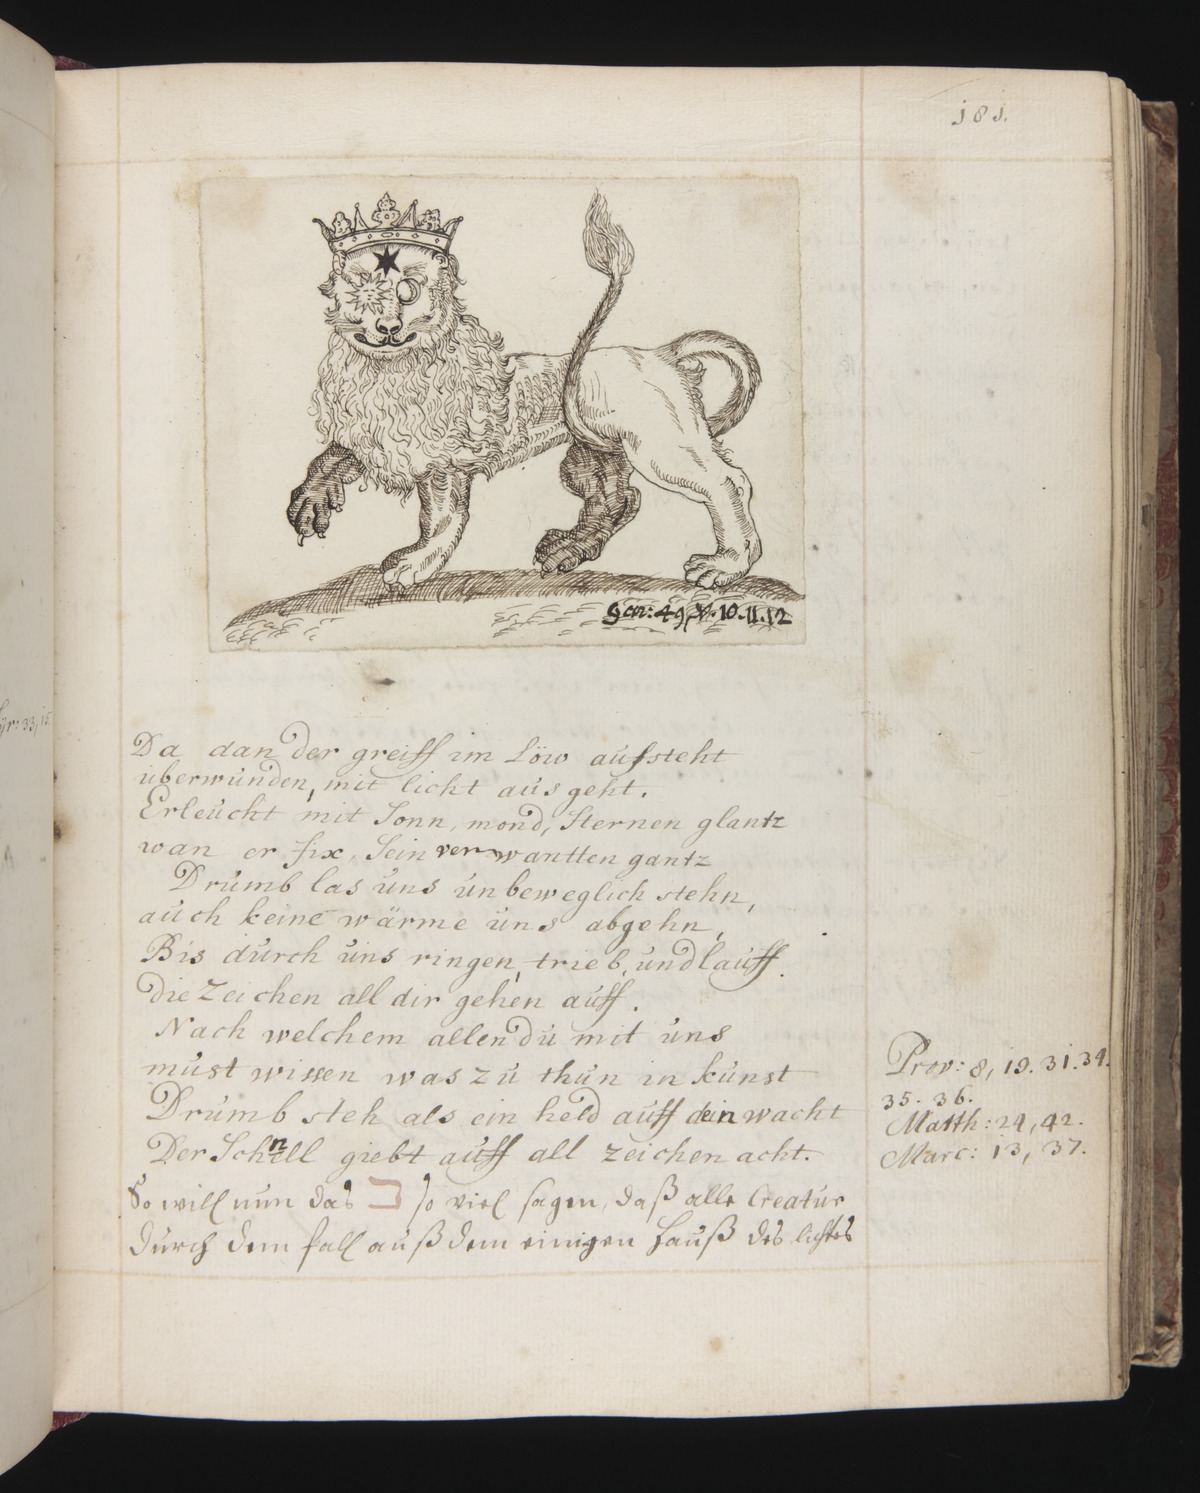 181.
Gen: 49, V. 10. 11. 12
Da dan der greiff im Löw aufsteht
überwunden, mit licht ausgeht.
Erleucht mit Sonn, mond, Sternen glantz
wan er fix, Sein verwantten gantz
Drumb las uns unbeweglich stehn,
auch keine wärme uns abgehn,
Bis durch uns ringen, trieb, und lauff.
die Zeichen all dir gehen auff.
Nach welchem allen du mit uns
must wissen was zu thun in kunst
Drumb steh als ein held auff dein wacht
Der Schnell giebt auff all zeichen acht.
So will nun das so viel sagen, daß alle Creatur
durch den fall auß dem einigen Hauß des lichtes
Prov: 8, 19. 31. 34.
35. 36.
Matth: 24, 42.
Marc: 13, 37.
33, 15